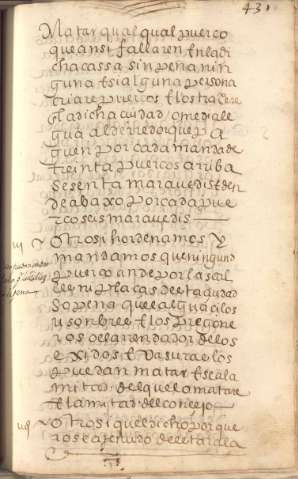 431
Matar qual qual puerco
que ansi fallaren en la di
cha cassa sin pena nin
guna E si alguna persona
criare puercos E los traxere
a la dicha ciudad o media le
gua al derredor que pa
guen por cada manada de
treinta puercos arriba
sesenta maravedis E den
de abaxo por cada pue
rco seis maravedis
vi Otrosi hordenamos Y
mandamos que ningund
puerco ande por las cal
les ni plaças desta ciudad
So pena que el alguacil o
su onbre E los pregone
ros o el arrendador de los
exidos E vasura e los
puedan matar E sea la
mitad del que lo matare
E la mitad del concejo
vii Otrosi que el dicho porque
ro sea tenudo de